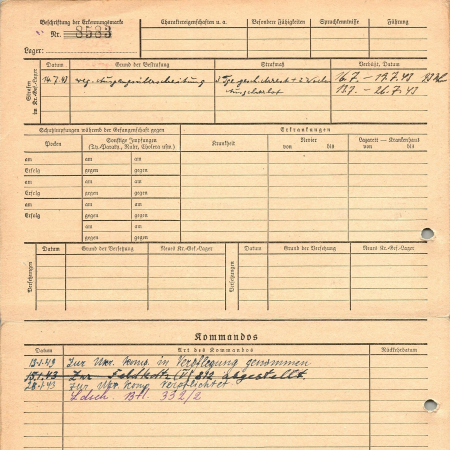 Beschriftung der Erkennungsmarke
Nr. 8583
Lager:
Charaktereigenschaften u. a.
Besondere Fähigkeiten
Sprachkenntnisse
Führung
Strafen im Kr.-Gef.-Lager
Datum
Grund der Bestrafung
Strafmaß
Verbüßt, Datum
14.7.43 weg. Ausgangsüberschreitung 3 Tge geschärft + 2 Wochen 16.7. – 19.7.43
13.7. – 26.7.43
Schutzimpfungen während der Gefangenschaft gegen
Erkrankungen
Pocken
Sonstige Impfungen
(Ty.-Paratyp., Ruhr, Cholera usw.)
Krankheit
Revier
von bis
Lazarett — Krankenhaus
von bis
am am am
Erfolg gegen gegen
am am am
Erfolg gegen gegen
am am am
Erfolg gegen gegen
am am
gegen gegen
Versetzungen
Datum
Grund der Versetzung
Neues Kr.-Gef.-Lager
Versetzungen
Datum
Grund der Versetzung
Neues Kr.-Gef.-Lager
Kommandos
Datum
Art des Kommandos
Rückkehrdatum
Zur Ukr. Komp. in Verpflegung genommen
15.1.43 Zur abgestellt
Zur Ukr. Komp. verpflichtet
Ldsch. Btl. 332/2